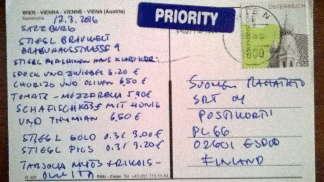 WIEN - VIENNA - VIENNE - VIENA (Austria)
17.3.2016
SALZBURG
STIEGL BRAUWELT
BRÄUHAUSSTRASSE 9
SPECK UND ZWIEBEL 6.20 €
CHORIZO UND OLIVEN 6,50 €
TOMATE - MOZZARELLA 5,90 €
SCHAFSKÄSE MIT HONIG
UND THYMIAN 6,50 €
STIEGL GOLD 0.3l 3,00 €
STIEGL PILS 0.3l 3.20 €
TARJOLLA MYÖS
PRIORITY
WIEN
ÖSTERREICH
SUOMEN
SRT
POSTIKORTI
PL 66
02601 ESPOO
FINLAND